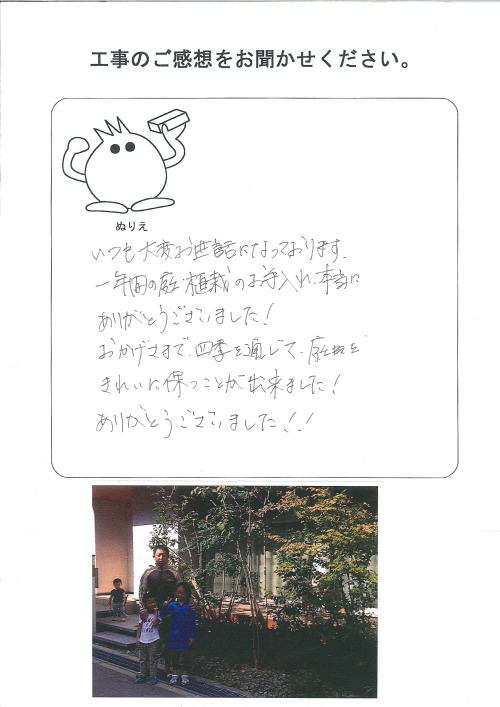 工事のご感想をお聞かせください。
ぬりえ
いつも大変お世話になっております。
一年間の庭・植栽のお手入れ、本当に
ありがとうございました！
おかげさまで、四季を通じて、庭を
きれいに保つことが出来ました！
ありがとうございました！！